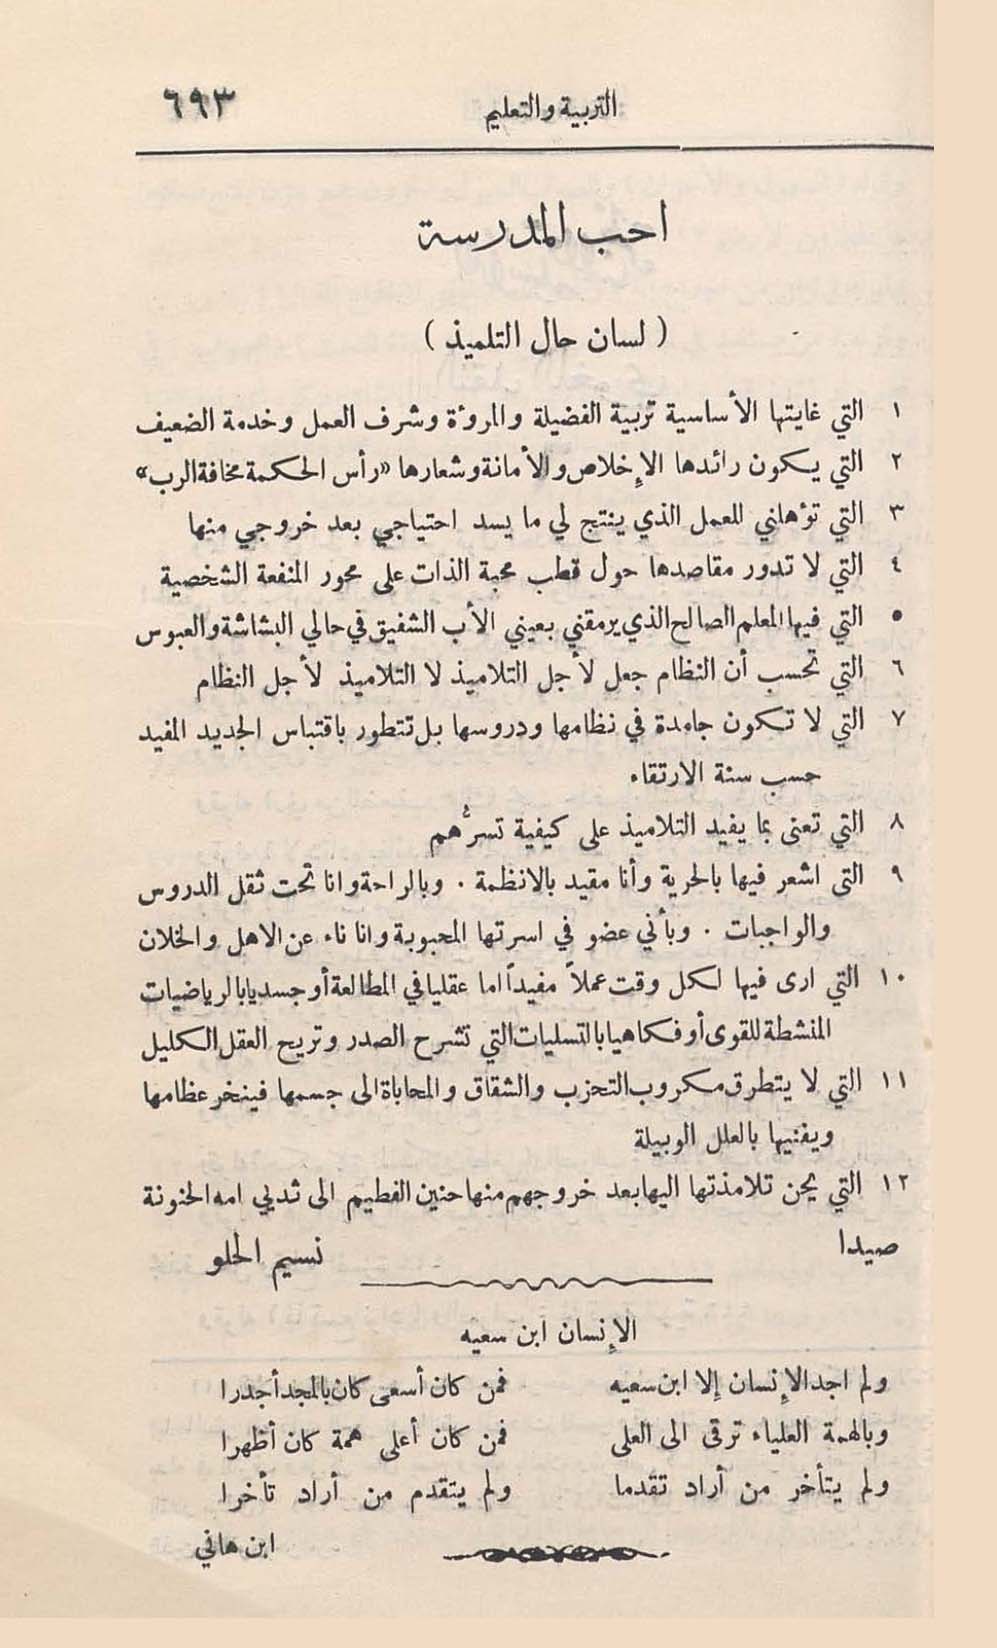 التربية والتعليم ٦٩٣
احب المدرسة
( لسان حال التلميذ )
١ التي غايتها الأساسية تربية الفضيلة والمروءة وشرف العمل وخدمة الضعيف
٢ التي يكون رائدها الإخلاص والأمانة وشعارها «رأس الحكمة مخافة الرب»
٣ التي تؤهلني للعمل الذي ينتج لي ما يسد احتياجي بعد خروجي منها
٤ التي لا تدور مقاصدها حول قطب محبة الذات على محور المنفعة الشخصية
٥ التي فيها المعلم الصالح الذي يرمقني بعيني الأب الشفيق في حالي البشاشة والعبوس
٦ التي تحسب أن النظام جعل لأجل التلاميذ لا التلاميذ لأجل النظام
٧ التي لا تكون جامدة في نظامها ودروسها بل تتطور باقتباس الجديد المفيد
حسب سنة الارتقاء
٨ التي تعنى بما يفيد التلاميذ على كيفية تسرُّهم
٩ التي اشعر فيها بالحرية وأنا مقيد بالانظمة . وبالراحة وانا تحت ثقل الدروس
والواجبات . وبأني عضو في اسرتها المحبوبة وانا ناء عن الاهل والخلان
١٠ التي ارى فيها لكل وقت عملاً مفيداً اما عقليا في المطالعة أو جسديا بالرياضيات
المنشطة للقوى أو فكاهيا بالتسليات التي تشرح الصدر وتريح العقل الكليل
١١ التي لا يتطرق مكروب التحزب والشقاق والمحاباة الى جسمها فينخر عظامها
ويفنيها بالعلل الوبيلة
١٢ التي يحن تلامذتها اليها بعد خروجهم منها حنين الفطيم الى ثديي امه الحنونة
صيدا نسيم الحلو
الإنسان ابن سعيه
ولم اجد الإنسان إلا ابن سعيه فمن كان أسعى كان بالمجد أجدرا
وبالهمة العلياء ترقى الى العلى فمن كان أعلى همة كان أظهرا
ولم يتأخر من أراد تقدما ولم يتقدم من أراد تأخرا
ابن هاني